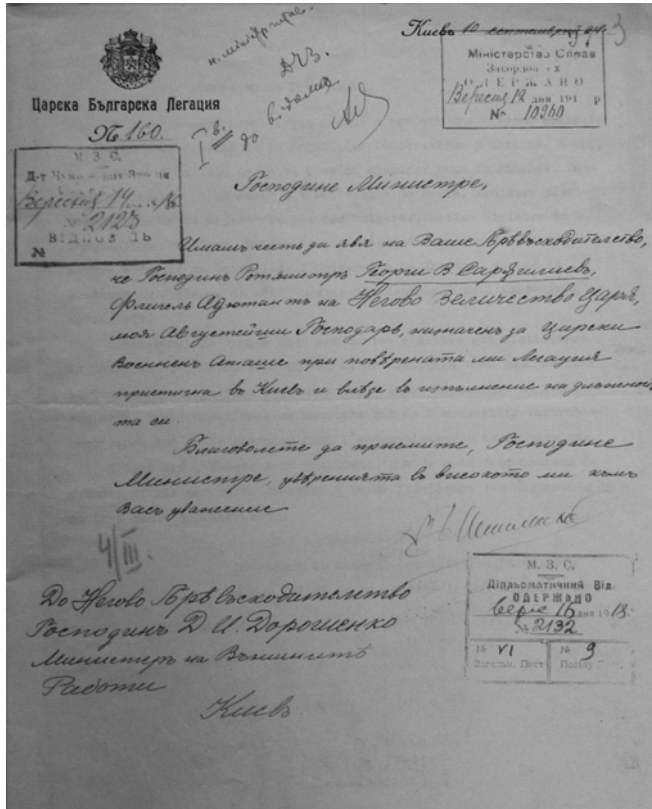 Киевъ 10 септемврий
3
Міністерство Справ
Закордонних
ОДЕРЖАНО
Вересня 12 дня 191 р
№ 10360
Царска Българска Легация
№ 160.
до відома
М. З. С.
Д-т Чужоземних Зносин
Вересня 14
№ 2123
ВІДПОВІДЬ
№
Господине Министре,
Имамъ честь да явя на Ваше Прѣвъсходителство,
че Господинъ Ротмистръ Георги В.
Флигель Адютантъ на Негово Величество Царя,
моя Августейши Господарь, назначенъ за Царски
Военненъ Аташе при повѣрената ми Легация
пристигна въ Киевъ и влѣзе въ изпълнение на длъжностьта си.
Благоволете да приемите, Господине
Министре, увѣренията въ високото ми къмъ
Васъ уважение
4/III.
М. З. С.
Діпльоматичний Від.
ОДЕРЖАНО
16 дня 1918
№ 2132
№ VI
№ 9
Загальн. Лист
До Негово Прѣвъсходителство
Господинъ Д. И. Дорошенко
Министеръ на Външнитѣ
Работи
Киевъ